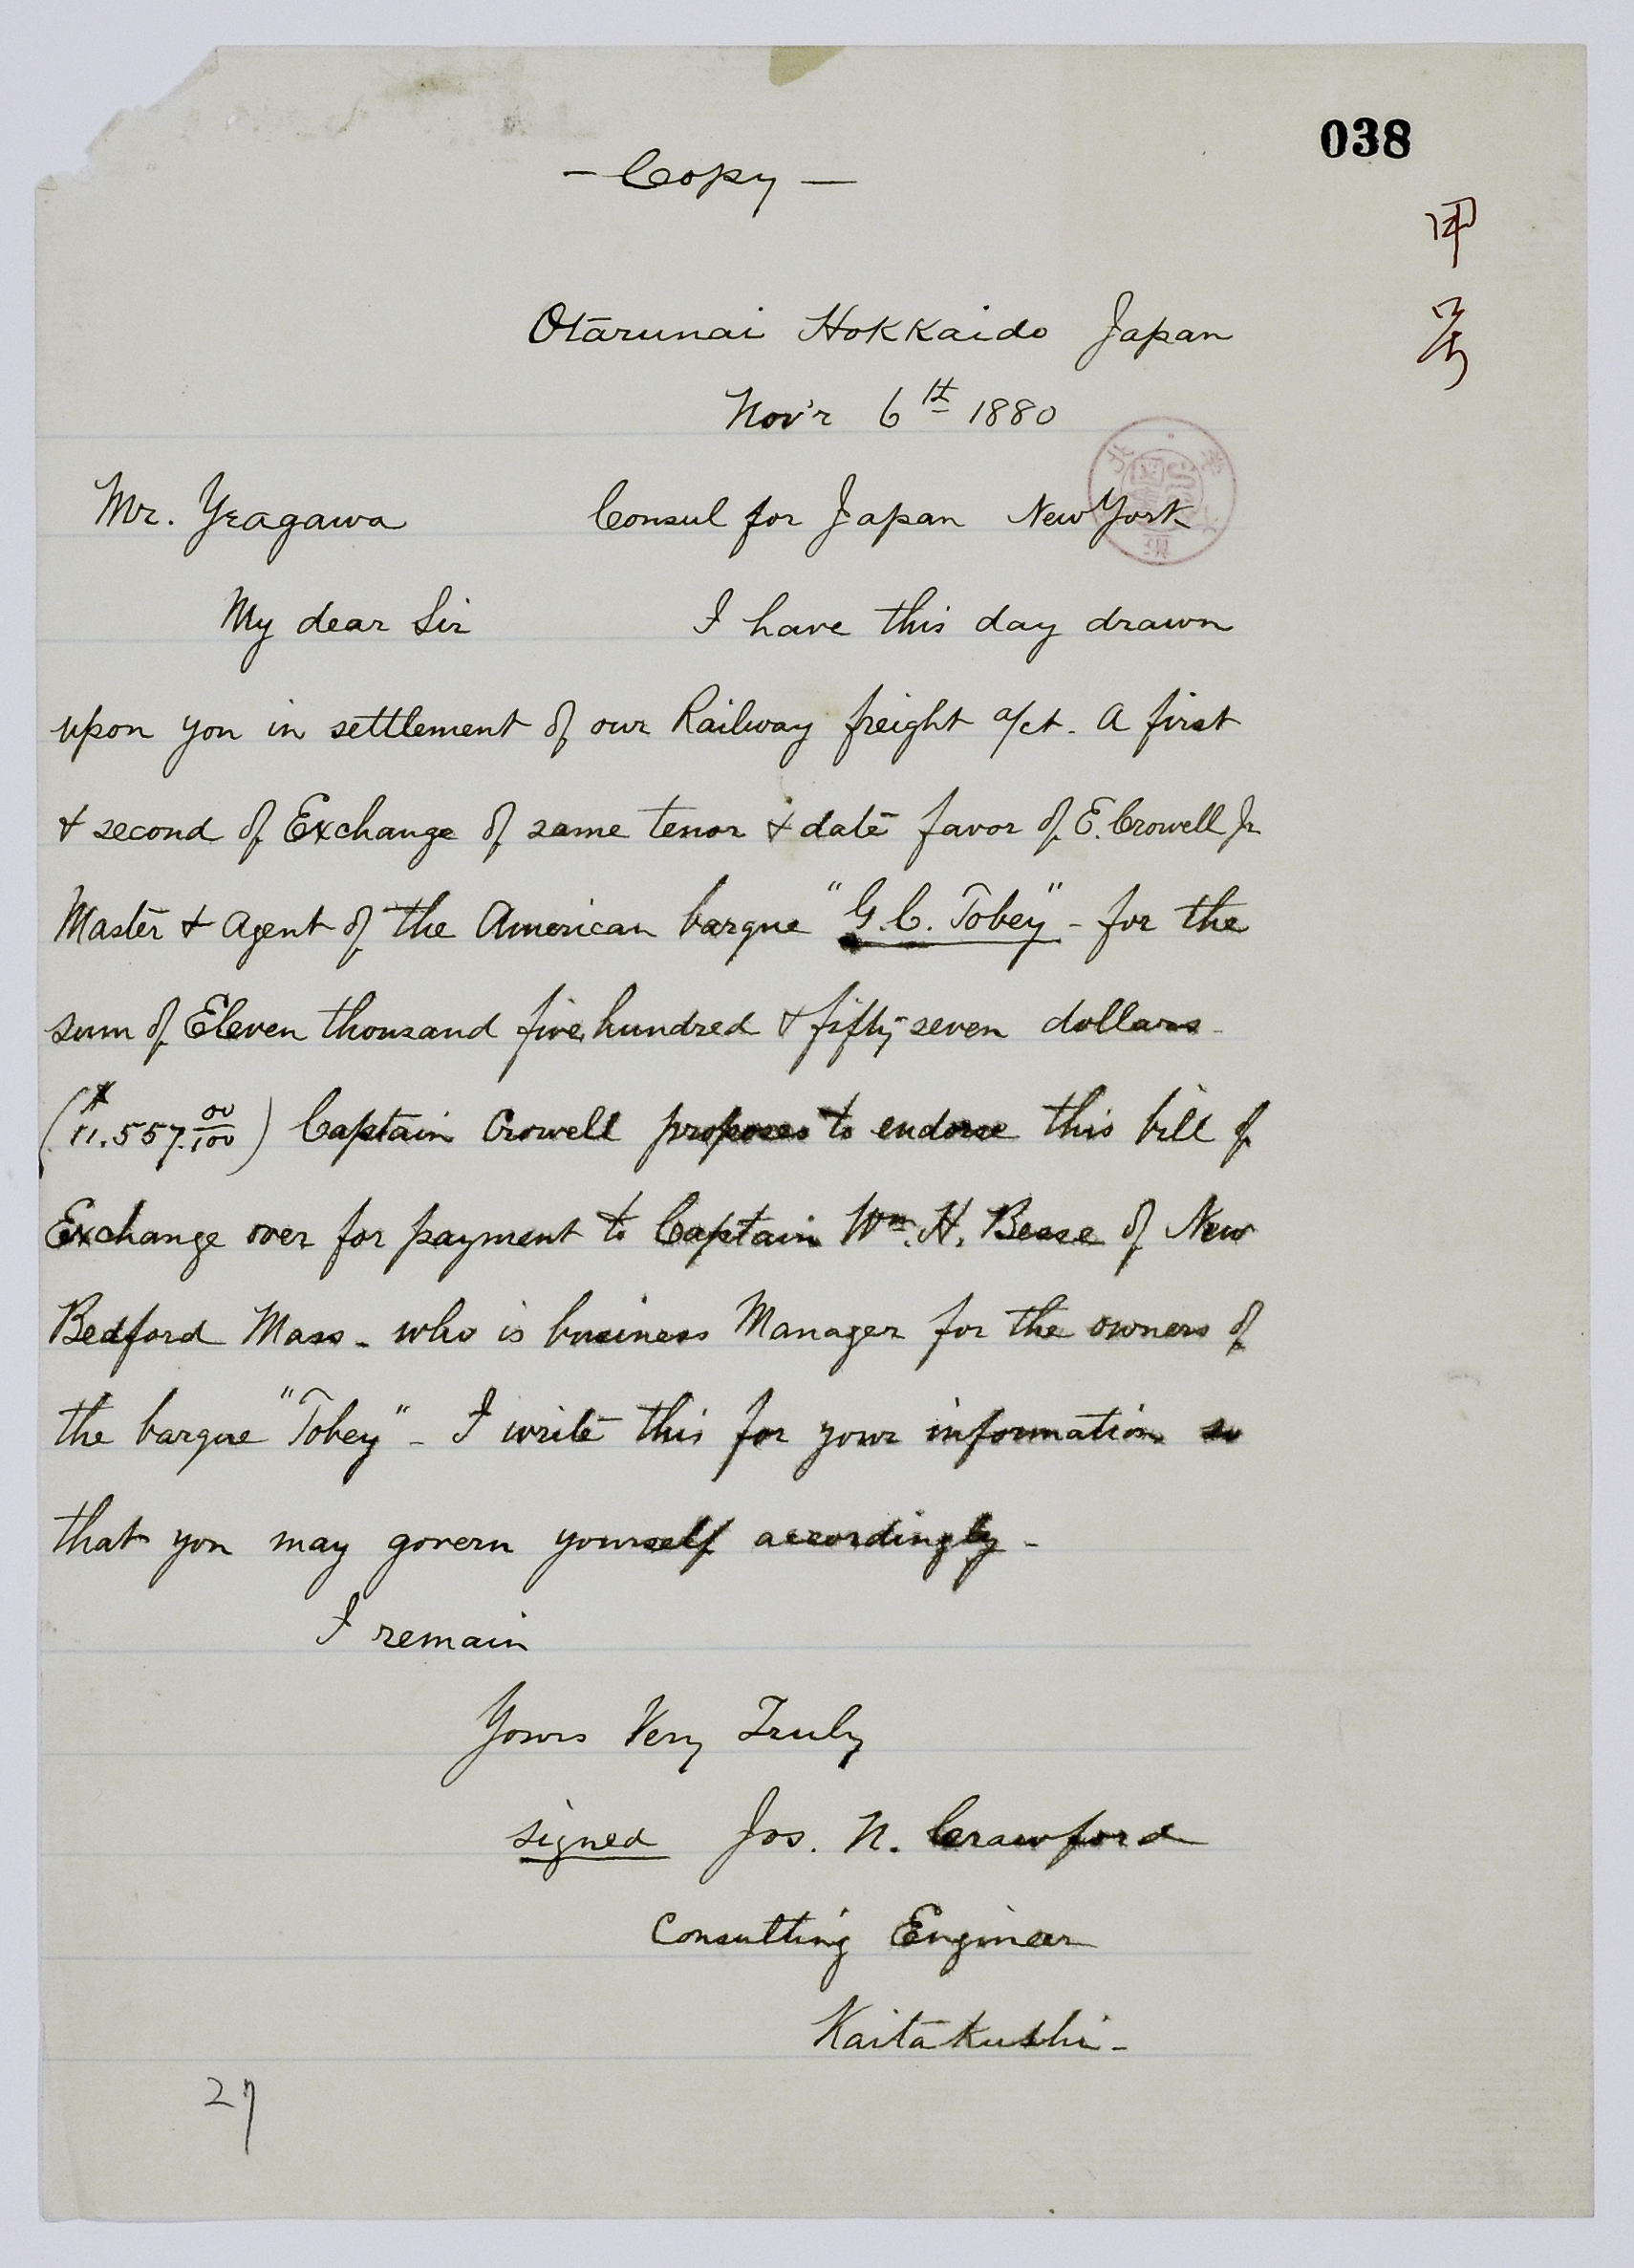 038
甲
号
- Copy -
Otarunai Hokkaido Japan
Nov'r 6th 1880
Mr. Yeagawa Consul for Japan New York
My dear Sir I have this day drawn
upon you in settlement of our Railway freight a/ct. A first
& second of Exchange of same tenor & date favor of E. Crowell Jr
Master & Agent of the American barque "G. C. Tobey" - for the
sum of Eleven thousand five hundred & fifty-seven dollars
($11.557.00/100) Captain Crowell proposes to endorse this bill of
Exchange over for payment to Captain Wm. H. Besse of New
Bedford Mass - who is business Manager for the owners of
the barque "Tobey" - I write this for your information so
that you may govern yourself accordingly -
I remain
Yours Very Truly
signed Jos. N. Crawford
Consulting Engineer
Kaitakushi -
27